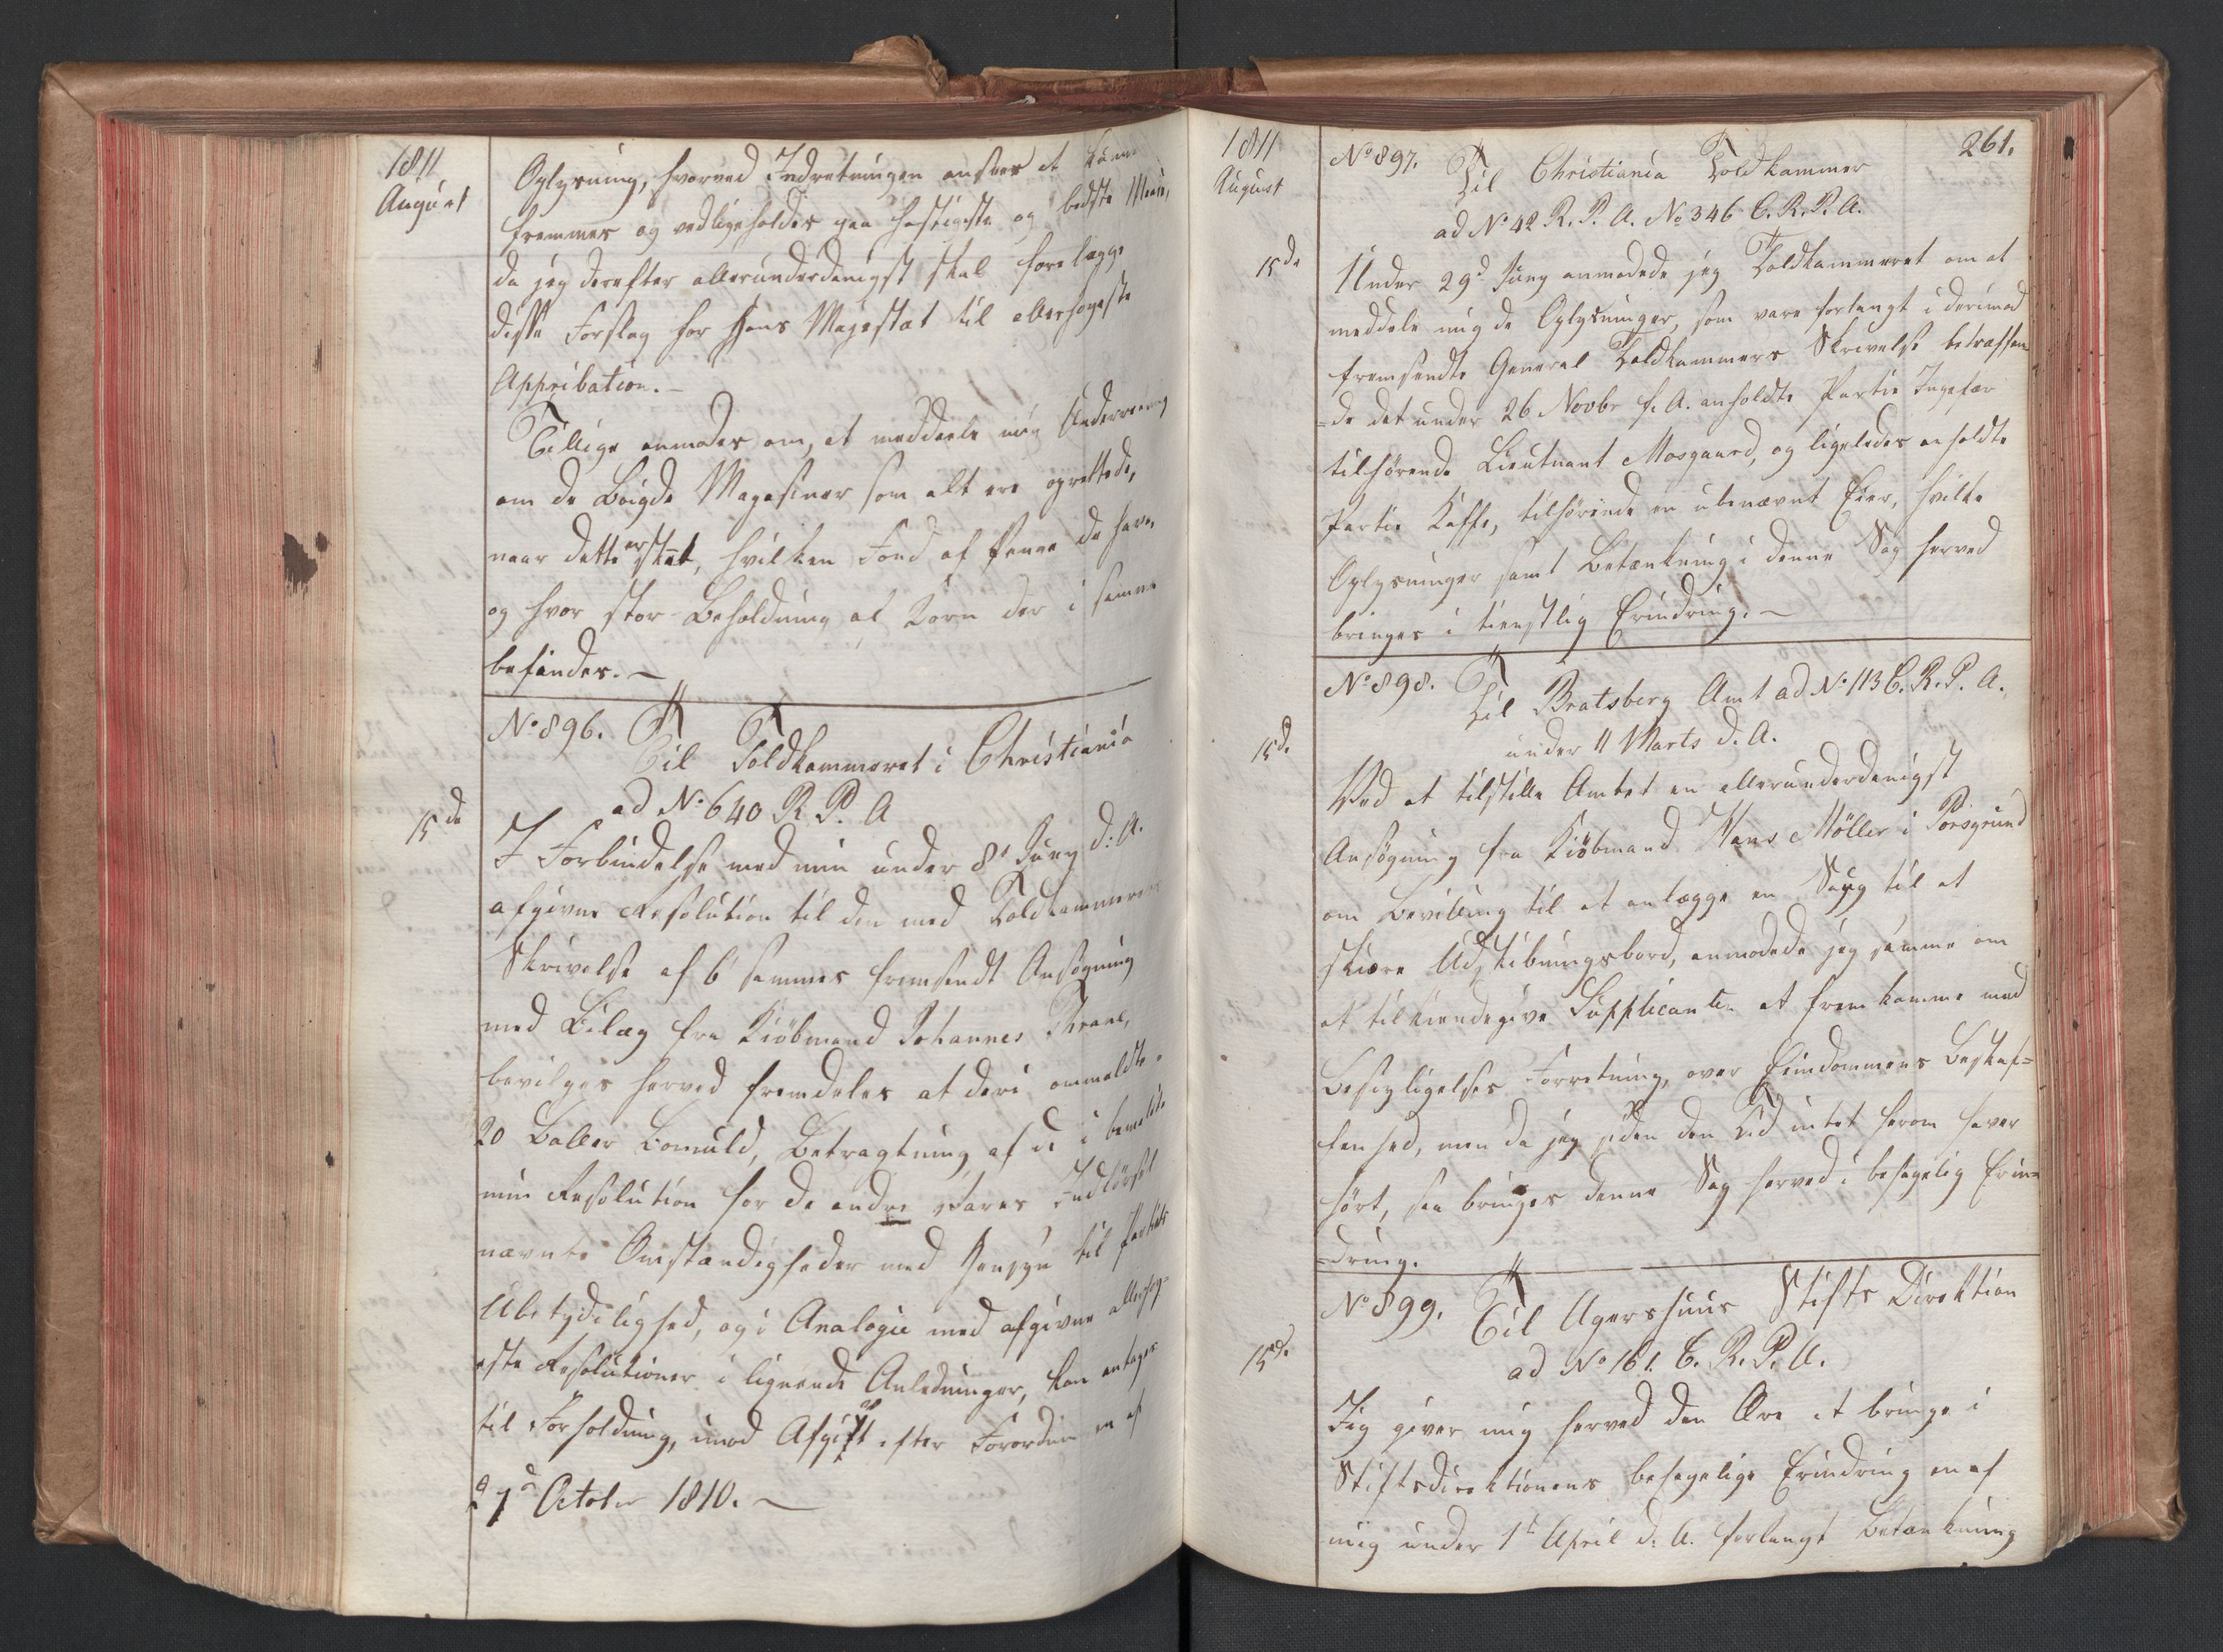 1811
August
Oplysning, hvorved Indretningen ansees at kunne
fremmes og vedligeholdes paa hastigste og bedste Maade,
da jeg derefter allerunderdanigst skal forelægge
disse Forslag for Hans Majestæt til allerhøyeste
Approbation.—
Tillige anmodes om, at meddeele mig Underretning
om de Bøigde Magasiner som alt ere oprettede,
naar dette er skeet, hvilken Fond af Penge de have,
og hvor stor Beholdning af Korn der i samme
befindes.—
No 896. Til Toldkammeret i Christiania
ad No 640 R. P. A
15de
I Forbindelse med min under 8d Juny d: A.
afgivne Resolution til den med Toldkammerets
Skrivelse af 6 sammes fremsendt Ansøgning
med Bilag fra Kiøbmand Johannes Thrane,
bevilges herved fremdeles at deri anmeldte
20 Baller Bomuld, Betragtning af de i bemeldte
min Resolution for de andre Vares Indførsel
nævnte Omstændigheder med Hensyn til Partiets
Ubetydelighed, og i Analogie med afgivne allerhøy-
este Resolutioner i lignende Anledninger, kan antages
til Forholdning, imod Afgift efter Forordningen af
d 1d October 1810.—
1811
August
261.
No 897. Til Christiania Toldkammer
ad No 42 R. P. A. No 346 C. R. P. A.
15de
Under 29d Juny anmodede jeg Toldkammeret om at
meddele mig de Oplysninger, som vare forlangt i derimod
fremsendte General Toldkammers Skrivelse betræffen-
=de det under 26 Novbr f. A. anholdte Partie Ingefær
tilhørende Lieutnant Mosgaard, og ligeledes anholdte
Partie Kaffe, tilhørende en ubenævnt Eier, hvilke
Oplysninger samt Betænkning i denne Sag herved
bringes i tienstlig Erindring.—
No 898. Til Bratsberg Amt ad No 113 C. R. P. A.
under 11 Marts d. A.
15de
Ved at tilstille Amtet en allerunderdanigst
Ansøgning fra Kiøbmand Hans Møller i Porsgrund
om Bevilling til at anlægge en Saug til at
skiære Udskibningsbord, anmodede jeg samme om
at tilkiendegive Supplicanten at fremkomme med
Besigtigelses Forretning, over Eiendommens Beskaf=
fenhed, men da jeg siden den Tid intet herom haver
hørt, saa bringes denne Sag herved i behagelig Erin=
=dring.
No 899. Til Agershuus Stifts Direktion
ad No 161. C. R. P. A.
15de
Jeg giver mig herved den Ære at bringe i
Stiftsdirektionens behagelige Erindring en af
mig under 1d April d: A. forlangt Betænkning